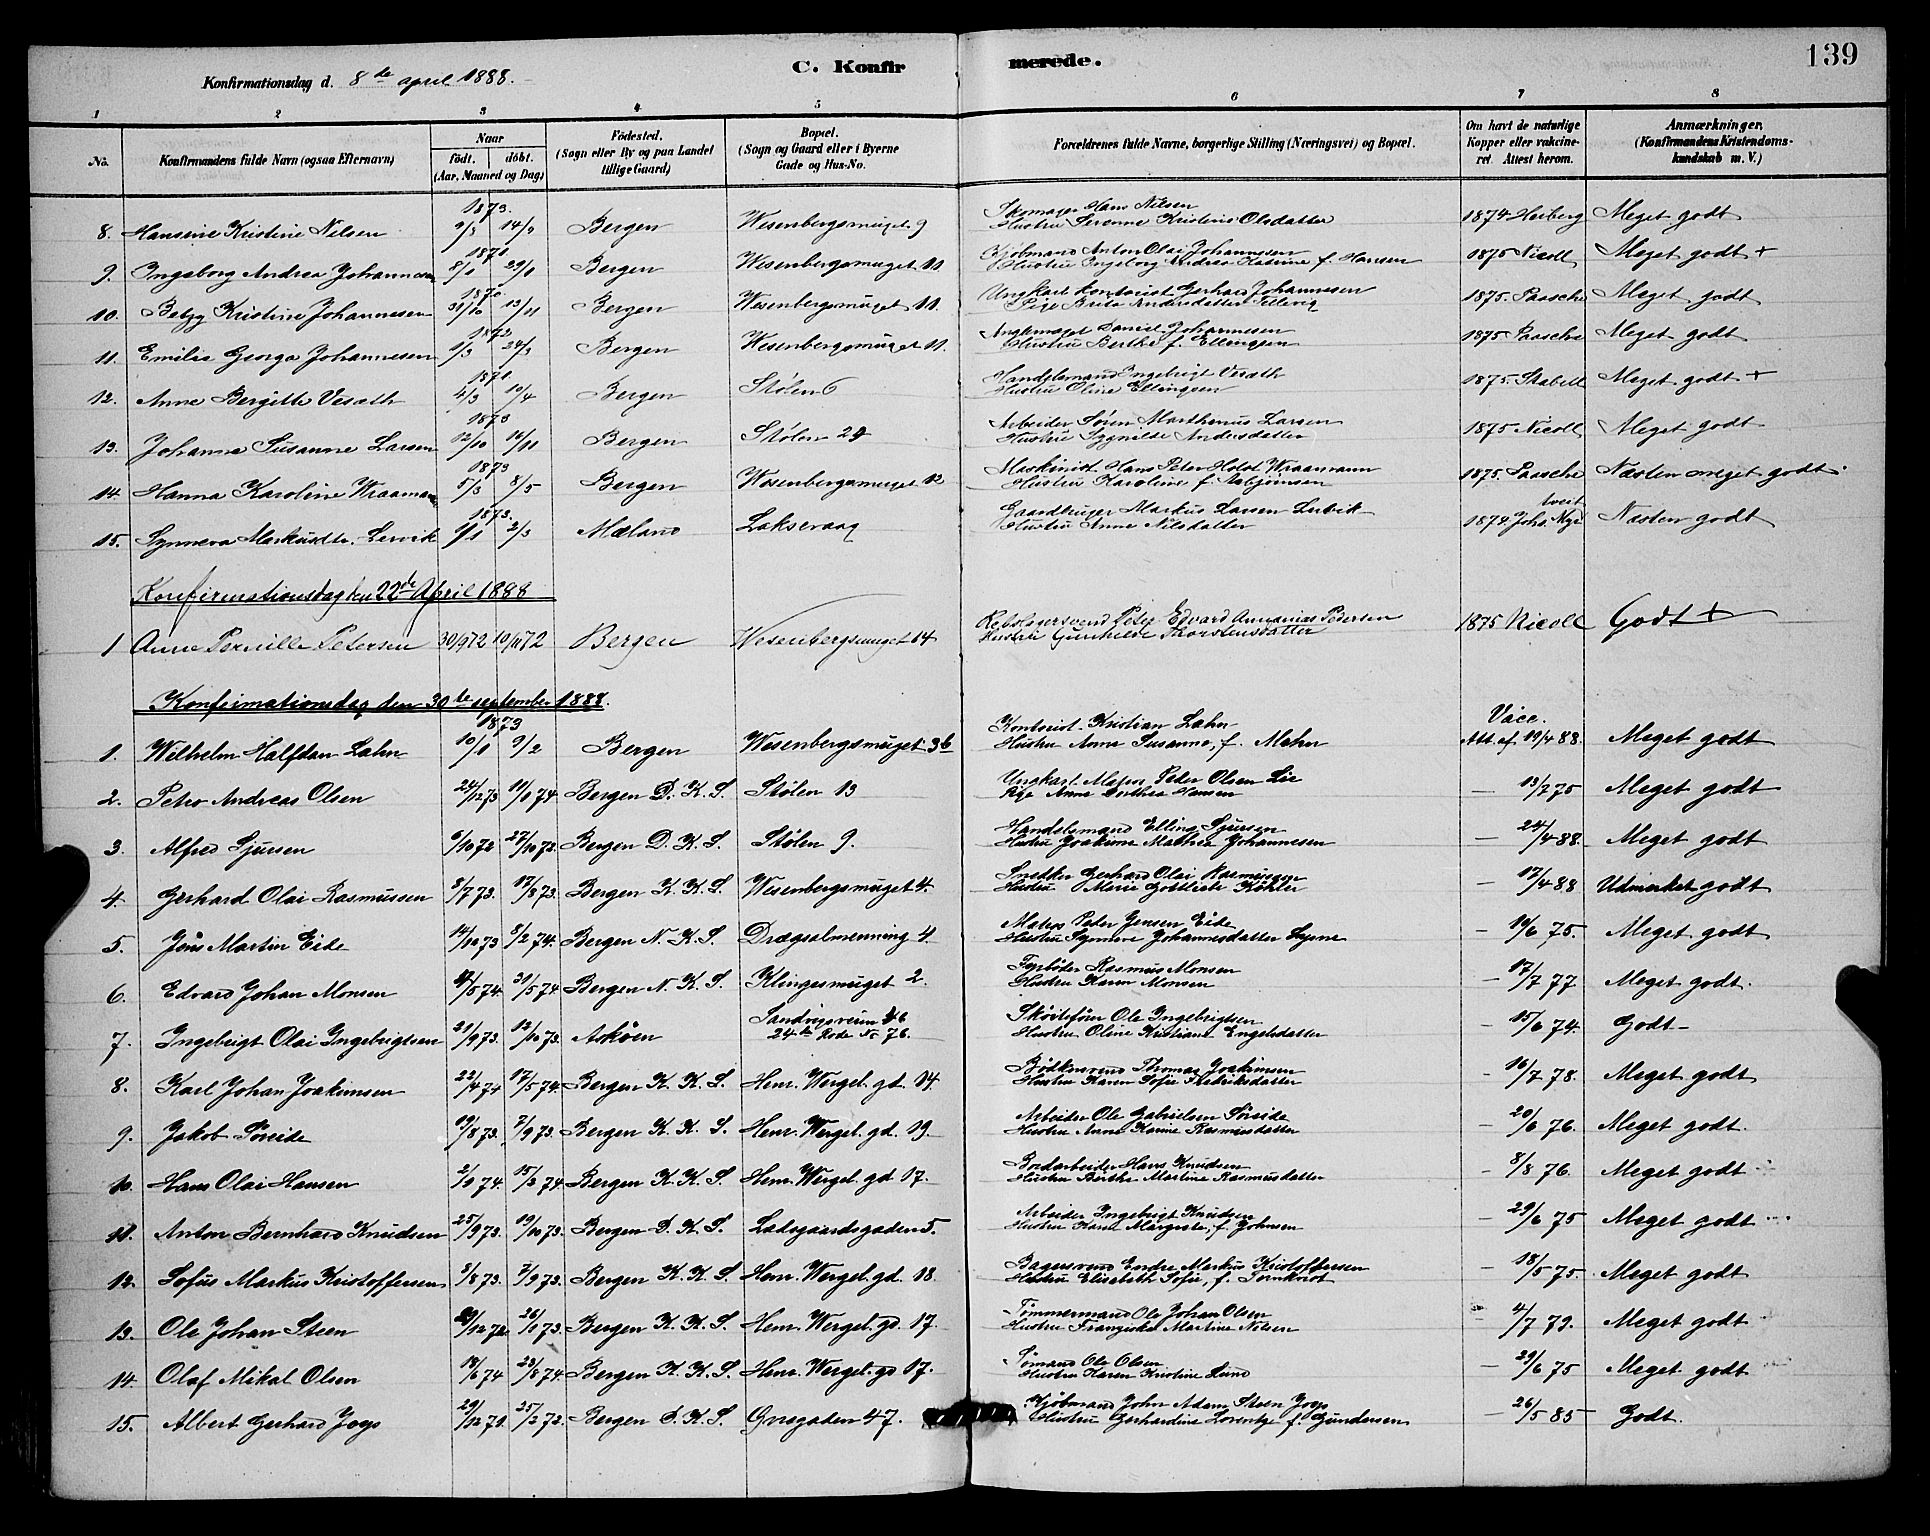 139
Konfirmationsdag d. 8de april 1888.
C. Konfirmerede.
1 2 3 4 5 6 7 8
No. Konfirmandens fulde Navn (ogsaa Efternavn) Naar födt. döbt. (Aar, Maaned og Dag) Födested. (Sogn eller By og paa Landet tillige Gaard) Bopæl. (Sogn og Gaard eller i Byerne Gade og Hus-No. Forældrenes fulde Navne, borgerlige Stilling (Næringsvei) og Bopæl. Om havt de naturlige Kopper eller vakcineret. Attest herom. Anmærkninger. (Konfirmandens Kristendomskundskab m. V.)
8. Hansine Kristine Nilsen 1873. 14/9 Bergen Wesenbergsmuget 9 Skomager Hans Nilsen Hustru Serenne Kristine Olsdatter 1874 Heiberg Meget godt
9. Ingeborg Andrea Johannesen Bergen Wesenbergsmuget 11 Kjøbmand Anton Olai Johannesen Hustru Ingeborg Andrea Katrine f. Hansen 1875 Nicoll Meget godt +
10. Betzy Kristine Johannesen 31/10 13/11 Bergen Wesenbergsmuget 11. Ungkarl kontorist Gerhard Johannesen Pige Brita Andersdatter Tellevig 1875. Paasche Meget godt
11. Emilie Georga Johannesen 1872 1/3 24/3 Bergen Wesenbergsmuget 11. Daniel Johannesen Hustru Berthe f. Ellingsen 1875 Paasche Meget godt
12. Anne Bergitte Vesæth 4/3 10/4 Bergen Stølen 6 Handelsmand Ingebrigt Vesæth Hustru Oline Ellingsen 1875. Stabell Meget godt +
13. Johanna Susanne Larsen 1873 12/10 16/11 Bergen Stølen 24 Arbeider Søren Marthenus Larsen Hustru Andersdatter 1875 Nicoll Meget godt
14. Hanna Karoline Wraamann 1873 5/3 8/5 Bergen Wesenbergsmuget 12 Maskinist Hans Peter Holst Wraamann Hustru Karoline f. Asbjørnsen 1875. Paasche Næsten meget godt.
15. Synneva Markusdtr. Lervik 1873. 2/3 Mæland Laksevaag Gaardbruger Markus Larsen Lervik Hustru Anne Nilsdatter 1874 Johs Nygtveit Næsten godt
Konfirmationsdag den 22de April 1888
1 Anne Pernille Petersen 30/9 72 10/11 72 Bergen Wesenbergsmuget 14 Rebslagersvend Peter Edvard Annanias Pedersen Hustru Gunhilde Thorstensdatter 1875 Nicoll Godt +
Konfirmationsdag den 30te september 1888.
1. Wilhelm Halfdan Lahn 1873 10/1 9/2 Bergen Wesenbergsmuget 36 Kontorist Kristian Lahn Hustru Anna Susanne, f. Mohn Vacc. Att. af 19/4 88. Meget godt
2. Petro Andreas Olsen 24/12 73 11/1 74 Bergen D. K. S. Stølen 13 Ungkarl Matros Peder Olsen Lie Pige Anne Dorthea Hansen — 13/7 75 Meget godt
3. Alfred Sjursen 6/10 72 27/10 72 Bergen D. K. S. Stølen 9. Handelsmand Elling Sjursen Hustru Joakime Mathea Johannesen — 24/4 88. Meget godt
4. Gerhard Olai Rasmussen 3/7 73. 17/8 73. Bergen K. K. S. Wesenbergsmuget 4. Snedker Gerhard Olai Rasmussen Hustru Marie Gottliebe Köhler — 17/4 88 Udmerket godt
5. Jens Martin Eide 14/12 73 8/2 74. Bergen N. K. S. Drægsalmenning 4. Matros Peder Jensen Eide Hustru Synneve Johannesdatter — 19/6 75. Meget godt
6. Edvard Johan Monsen 31/5 74 Bergen N. K. S. Klingesmuget 2. Rasmus Monsen Hustru Karen Monsen — 17/7 77 Meget godt.
7. Ingebrigt Olai Ingebrigtsen 21/9 73. 12/10 73. Askøen Sandvigsveien 46 24de Rode No 76. Skøitefører Ole Ingebrigtsen Hustru Oline Kristiane Engelsdatter — 15/6 74. Godt —
8. Karl Johan Joakimsen 22/4 74 17/5 74. Bergen K. K. S. Henr. Wergel. gd. 14 Bødkersvend Thomas Joakimsen Hustru Karen Sofie Fredriksdatter — 16/7 78. Meget godt
9. Jakob Søreide 19/8 73. 7/9 73. Bergen K. K. S. Henr. Wergel. gd. 19. Arbeider Ole Gabrielsen Sørside Hustru Anne Karine Rasmusdatter — 20/6 76. Meget godt.
10. Hans Olai Hansen 2/1 74. 15/2 74 Bergen K. K. S. Henr. Wergel. gd 17. Bordarbeider Hans Knudsen Hustru Berthe Martine Rasmusdatter — 8/8 76. Meget godt
11. Anton Bernhard Knudsen 25/9 73. 19/10 73. Bergen D. K. S. Ladegaardsgaden 5. Arbeider Ingebrigt Knudsen Hustru Karen Margrete, f. Johnsen — 29/6 75 Meget godt
12. Sofus Markus Kristoffersen 3/8 73. 7/9 73. Bergen K. K. S. Henr. Wergel. gd. 18. Bagersvend Endre Markus Kristoffersen Hustru Elisabeth Sofie, f. Tornkvist — 18/5 75. Meget godt
13. Ole Johan Steen 26/1 73. Bergen K. K. S. Henr. Wergel. gd. 17. Tømmermand Ole Johan Olsen Hustru Franziska Martine Nilsen — 4/7 79. Meget godt
14. Olaf Mikal Olsen 18/6 74 23/8 74 Bergen K. K. S. Henr. Wergel. gd 17. Sømand Ole Olsen Hustru Karen Kristine Lund — 29/6 75 Meget godt
15. Albert Gerhard Joys 29/12 71. 25/2 72. Bergen D. K. S. Øvregaden 47. Kjøbmand John Adam Steen Joys Hustru Gerhardine Lorentze f. Gundersen — 26/5 85 Godt.